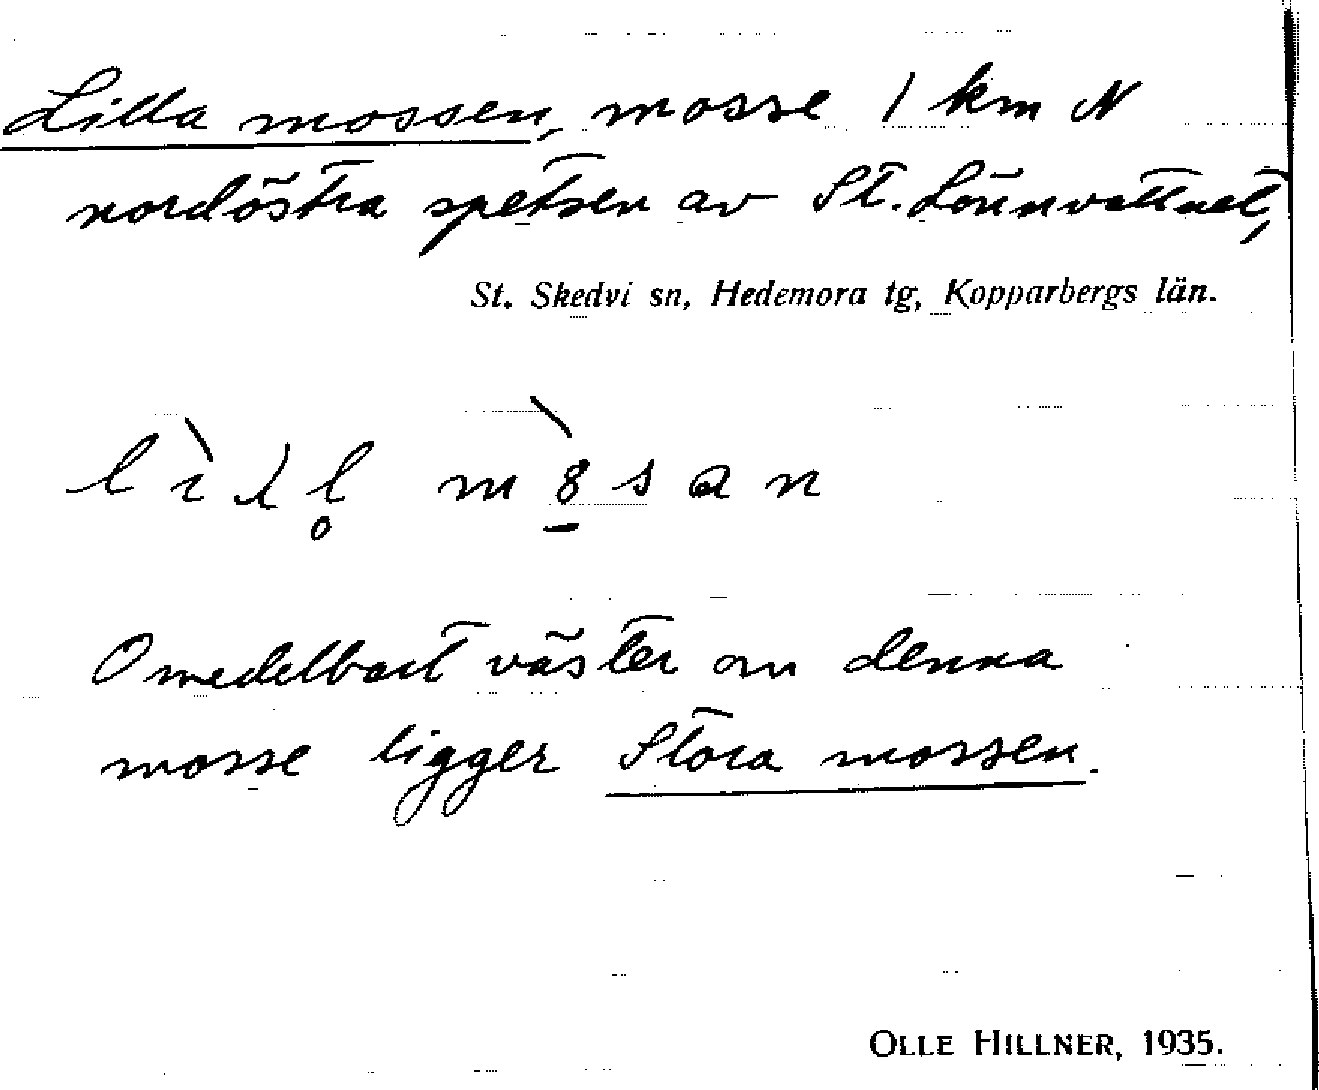 Lilla mossen, mosse 1 km N
nordöstra spetsen av St. Lönnvattnet,
St. Skedvi sn, Hedemora tg, Kopparbergs län.
Omedelbart väster om denna
mosse ligger Stora mossen.
OLLE HILLNER, 1935.